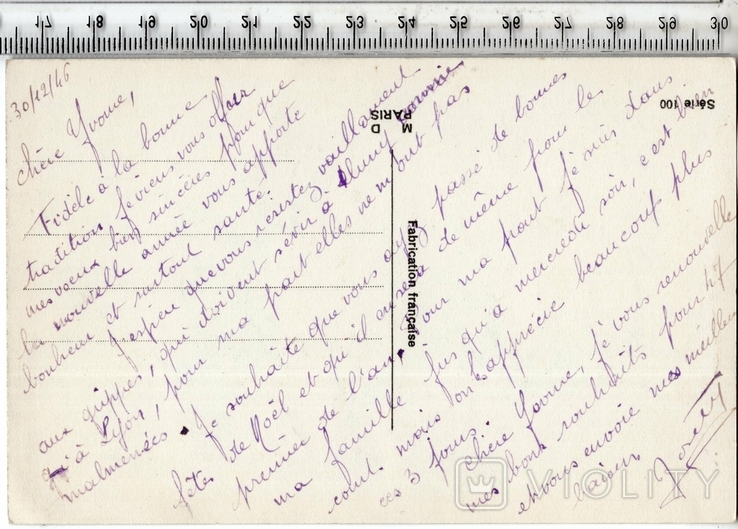 30/12/46
Chère Yvonne,
Fidèle à la bonne
tradition, je viens vous offrir
mes voeux bien sincères pour que
la nouvelle année vous apporte
bonheur et surtout santé.
J'espère que vous résistez vaillamment
aux grippes, qui doivent sévir à Cluny comme
à Lyon, pour ma part elles ne m'ont pas
malmenée. Je souhaite que vous ayez passé de bonnes
fêtes de Noël et qu'il en sera de même pour le
premier de l'an. Pour ma part je suis dans
ma famille jusqu'à mercredi soir, c'est bien
court mais on apprécie beaucoup plus
ces 3 jours. Chère Yvonne, je vous renouvelle
mes bons souhaits pour 47
et vous envoie mes meilleurs
baisers.
M D
PARIS
Fabrication française
Série 100
17 18 19 20 21 22 23 24 25 26 27 28 29 30
VIOLITY